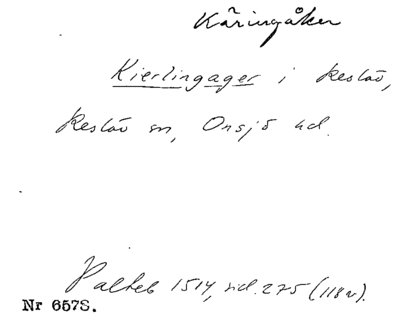 Käringåker
Kierlingager i Reslöv,
Reslöv sn, Onsjö hd.
Palteb 1514, sid. 275 (118v).
Nr 657S.